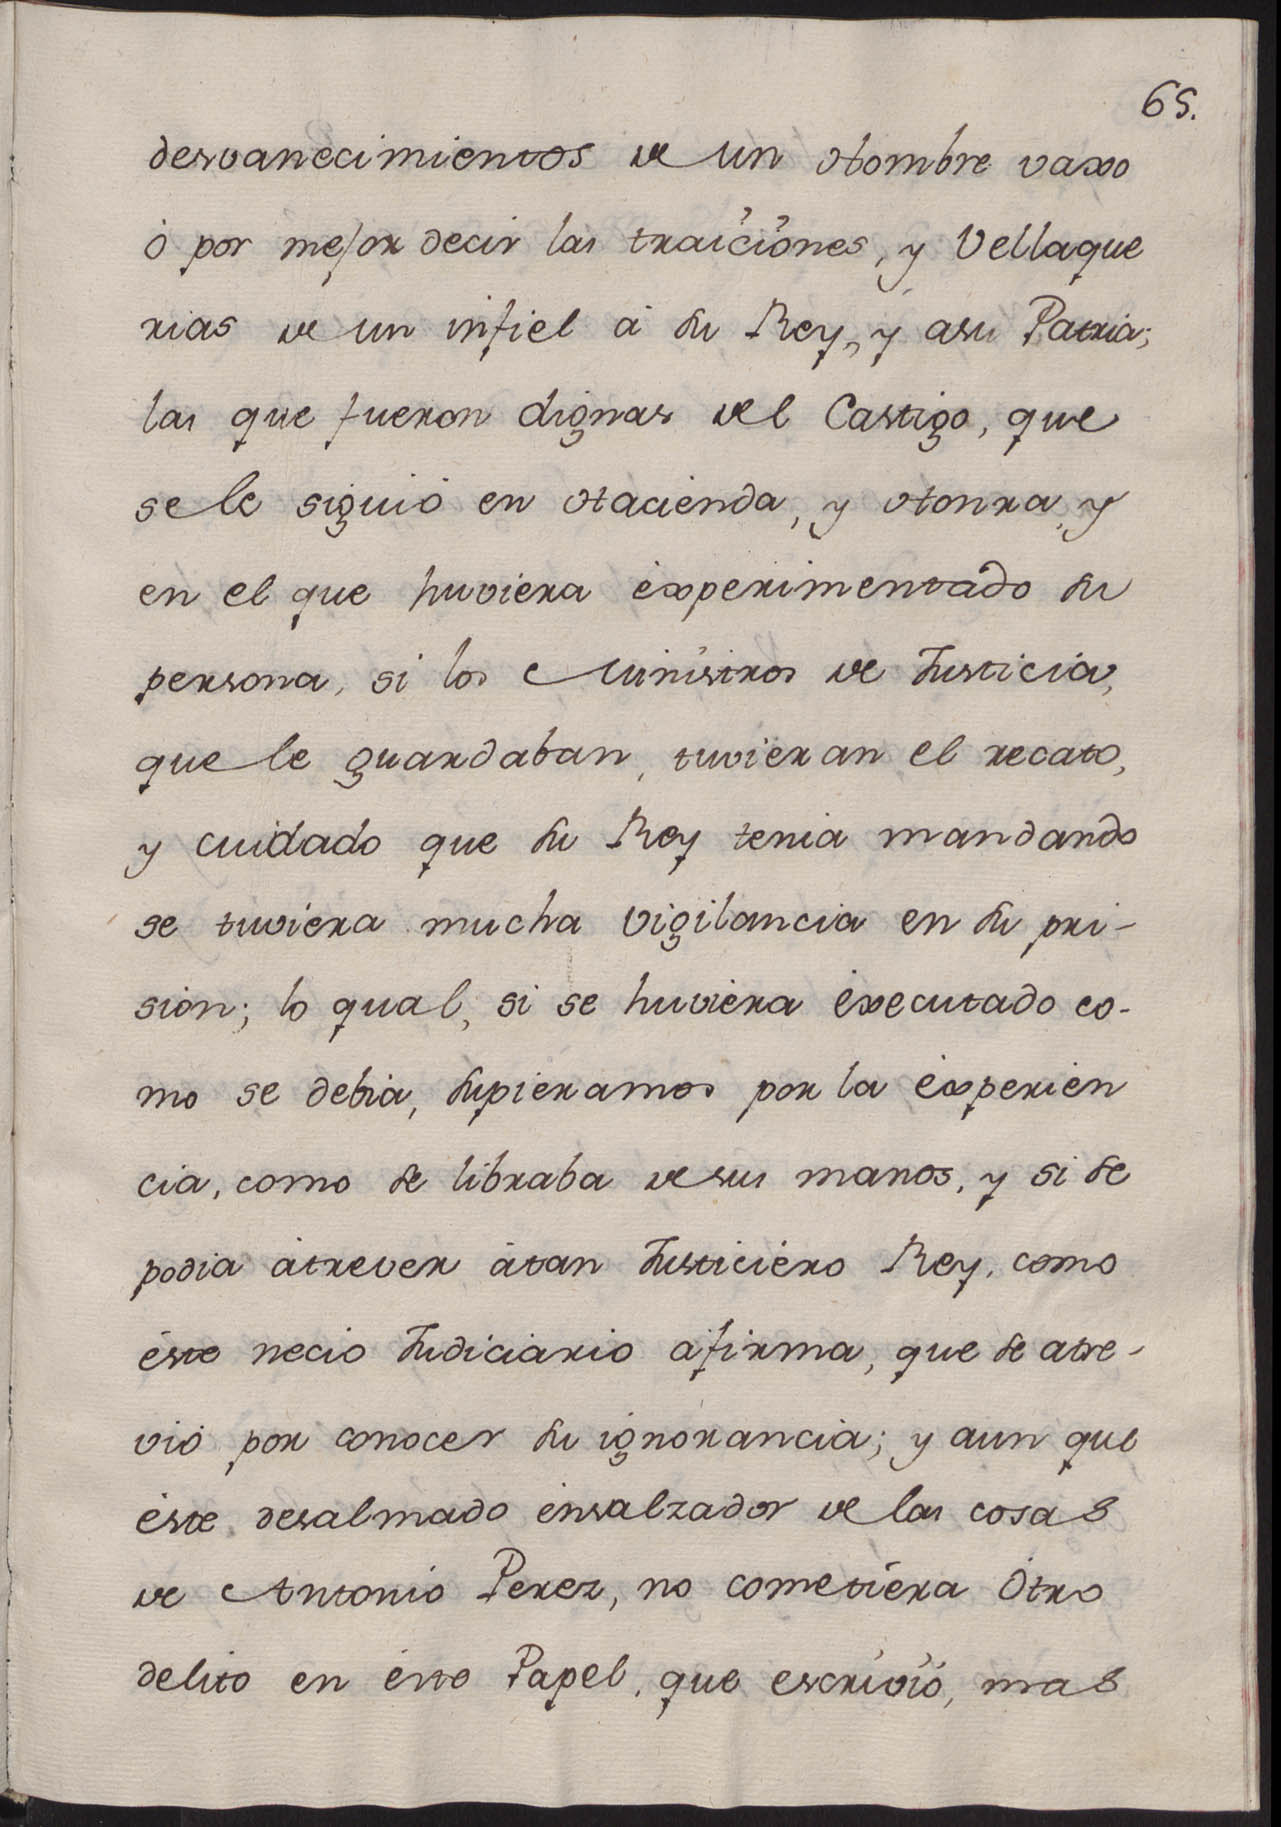 65.
desvanecimientos de un Hombre vaxo
ò por mejor decir las traiciones, y Vellaque
rias de un infiel à su Rey, y asu Patria;
las que fueron dignas del Castigo, que
se le siguiò en Hacienda, y Honra, y
en el que huviera èxperimentado su
persona, si los Ministros de Justicia,
que le guardaban, tuvieran el recato,
y cuidado que su Rey tenia mandando
se tuviera mucha vigilancia en su pri-
sion; lo qual, si se huviera èxecutado co-
mo se debia, supieramos por la èxperien
cia, como se libraba de sus manos, y si se
podia àtrever àtan Justicièro Rey, como
èste necio Judiciario afirma, que se atre-
viò por conocer su ignorancia; y aun que
èste desalmado ènsalzador de las cosas
de Antonio Perez, no cometièra Otro
delito en èste Papel, que escriviò, mas